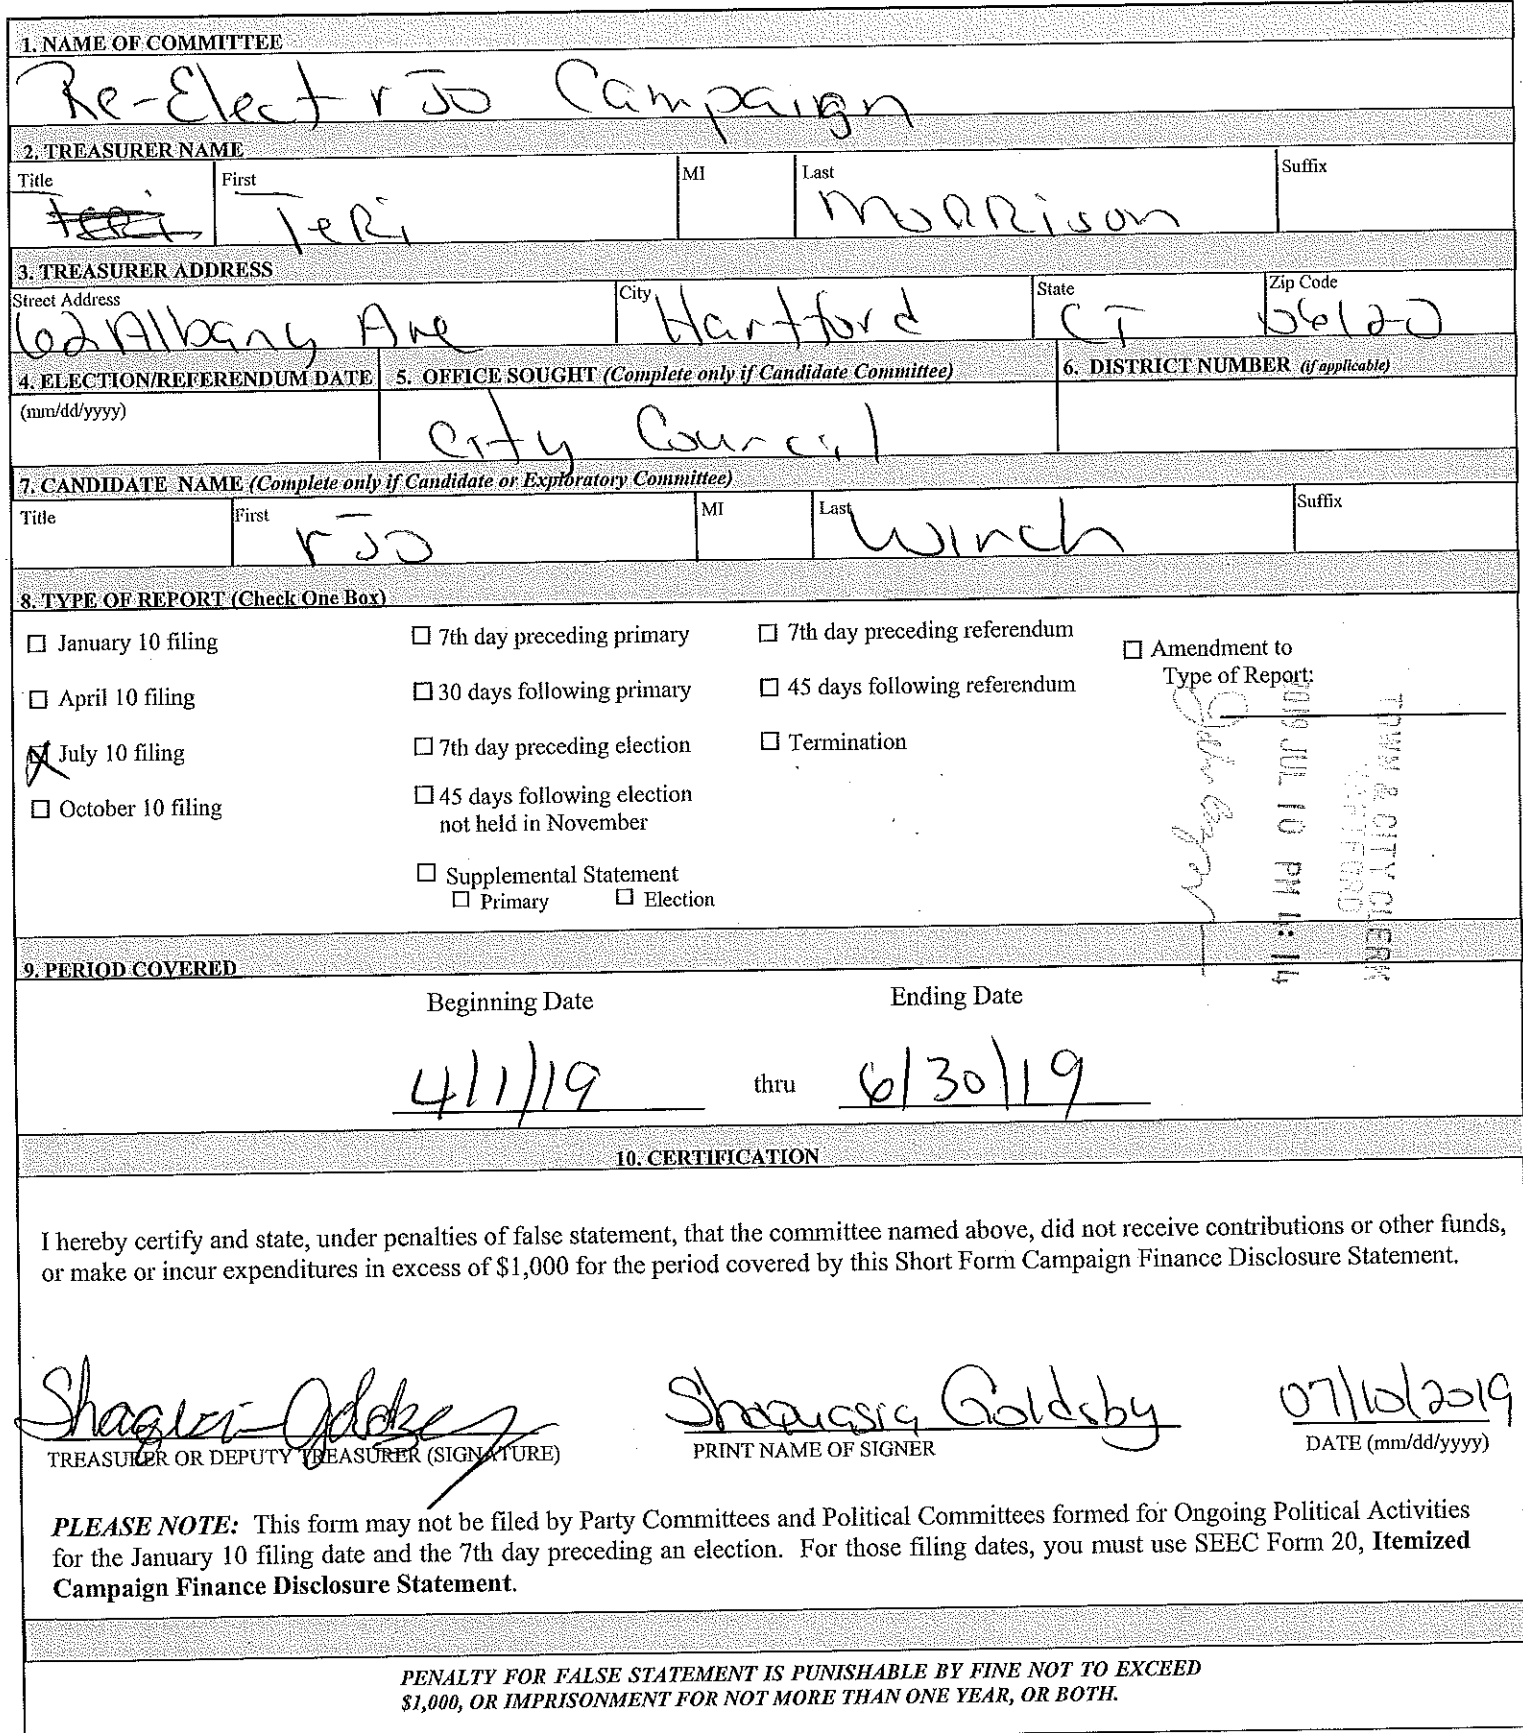 1. NAME OF COMMITTEE
Re-Elect rJo Campaign
2. TREASURER NAME
Title First MI Last Suffix
Teri Teri Morrison
3. TREASURER ADDRESS
Street Address City State Zip Code
62 Albany Ave Hartford CT 06120
4. ELECTION/REFERENDUM DATE 5. OFFICE SOUGHT (Complete only if Candidate Committee) 6. DISTRICT NUMBER (if applicable)
(mm/dd/yyyy)
City Council
7. CANDIDATE NAME (Complete only if Candidate or Exploratory Committee)
Title First MI Last Suffix
rJo Winch
8. TYPE OF REPORT (Check One Box)
☐ January 10 filing
☐ April 10 filing
☒ July 10 filing
☐ October 10 filing
☐ 7th day preceding primary
☐ 30 days following primary
☐ 7th day preceding election
☐ 45 days following election
not held in November
☐ Supplemental Statement
☐ Primary ☐ Election
☐ 7th day preceding referendum
☐ 45 days following referendum
☐ Termination
☐ Amendment to
Type of Report:
TOWN & CITY CLERK
HARTFORD
2019 JUL 10 PM 4:14
9. PERIOD COVERED
Beginning Date Ending Date
4/1/19 thru 6/30/19
10. CERTIFICATION
I hereby certify and state, under penalties of false statement, that the committee named above, did not receive contributions or other funds,
or make or incur expenditures in excess of $1,000 for the period covered by this Short Form Campaign Finance Disclosure Statement.
Shaquasia Goldsby 07/10/2019
TREASURER OR DEPUTY TREASURER (SIGNATURE) PRINT NAME OF SIGNER DATE (mm/dd/yyyy)
PLEASE NOTE: This form may not be filed by Party Committees and Political Committees formed for Ongoing Political Activities
for the January 10 filing date and the 7th day preceding an election. For those filing dates, you must use SEEC Form 20, Itemized
Campaign Finance Disclosure Statement.
PENALTY FOR FALSE STATEMENT IS PUNISHABLE BY FINE NOT TO EXCEED
$1,000, OR IMPRISONMENT FOR NOT MORE THAN ONE YEAR, OR BOTH.